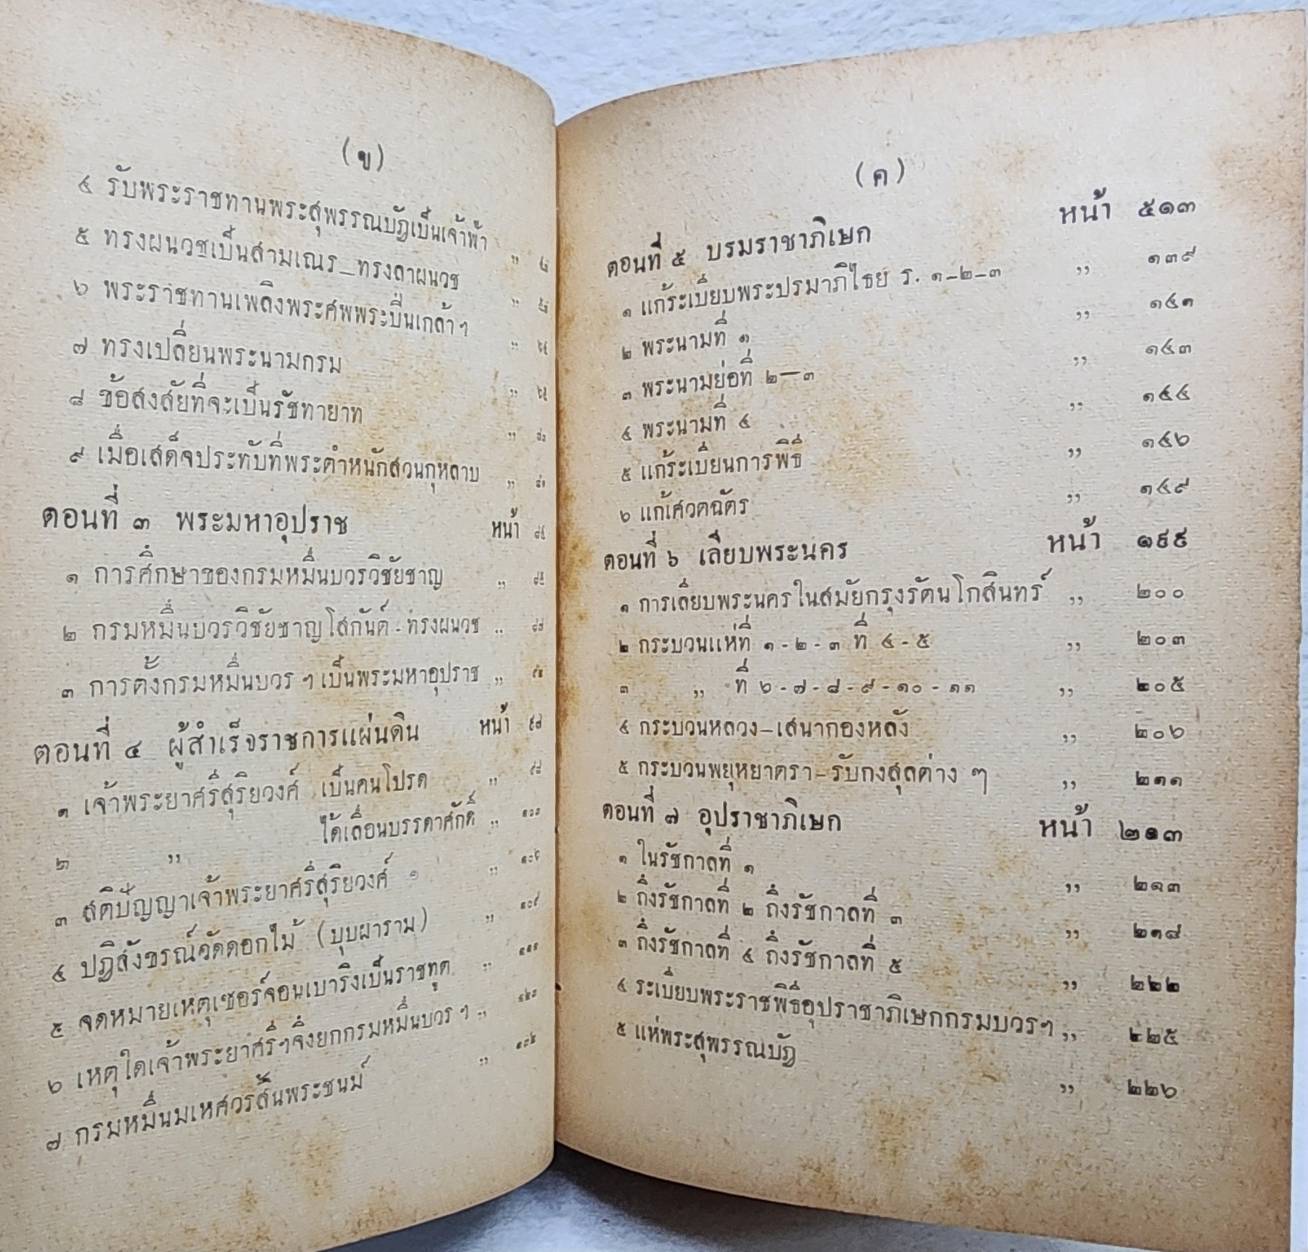 (ข)
๔ รับพระราชทานพระสุพรรณบัฏเป็นเจ้าฟ้า ,,
๕ ทรงผนวชเป็นสามเณร_ทรงลาผนวช ,,
๖ พระราชทานเพลิงพระศพพระปิ่นเกล้าฯ ,,
๗ ทรงเปลี่ยนพระนามกรม ,,
๘ ข้อสงสัยที่จะเป็นรัชทายาท ,,
๙ เมื่อเสด็จประทับที่พระตำหนักสวนกุหลาบ ,,
ตอนที่ ๓ พระมหาอุปราช หน้า
๑ การศึกษาของกรมหมื่นบวรวิชัยชาญ ,,
๒ กรมหมื่นบวรวิชัยชาญโสกันต์ - ทรงผนวช ,,
๓ การตั้งกรมหมื่นบวร ฯ เป็นพระมหาอุปราช ,,
ตอนที่ ๔ ผู้สำเร็จราชการแผ่นดิน หน้า ๙๘
๑ เจ้าพระยาศรีสุริยวงศ์ เป็นคนโปรด ,, ๙๘
๒ ,, ได้เลื่อนบรรดาศักดิ์ ,,
๓ สติปัญญาเจ้าพระยาศรีสุริยวงศ์ ,, ๑๐๖
๔ ปฏิสังขรณ์วัดดอกไม้ (บุบผาราม) ,, ๑๐๙
๕ จดหมายเหตุเซอร์จอนเบาริงเป็นราชทูต ,,
๖ เหตุใดเจ้าพระยาศรีฯจึงยกกรมหมื่นบวร ฯ ,,
๗ กรมหมื่นมเหศวรสิ้นพระชนม์ ,,
(ค)
ตอนที่ ๕ บรมราชาภิเษก หน้า ๕๑๓
๑ แก้ระเบียบพระปรมาภิไธย ร. ๑-๒-๓ ,, ๑๓๙
๒ พระนามที่ ๑ ,, ๑๔๑
๓ พระนามย่อที่ ๒—๓ ,, ๑๔๓
๔ พระนามที่ ๔ ,, ๑๔๔
๕ แก้ระเบียนการพิธี ,, ๑๔๖
๖ แก้เศวตฉัตร ,, ๑๔๙
ตอนที่ ๖ เลียบพระนคร หน้า ๑๙๙
๑ การเลียบพระนครในสมัยกรุงรัตนโกสินทร์ ,, ๒๐๐
๒ กระบวนแห่ที่ ๑ - ๒ - ๓ ที่ ๔ - ๕ ,, ๒๐๓
๓ ,, ที่ ๖ - ๗ - ๘ - ๙ - ๑๐ - ๑๑ ,, ๒๐๕
๔ กระบวนหลวง-เสนากองหลัง ,, ๒๐๖
๕ กระบวนพยุหยาตรา-รับกงสุลต่าง ๆ ,, ๒๑๑
ตอนที่ ๗ อุปราชาภิเษก หน้า ๒๑๓
๑ ในรัชกาลที่ ๑ ,, ๒๑๓
๒ ถึงรัชกาลที่ ๒ ถึงรัชกาลที่ ๓ ,, ๒๑๘
๓ ถึงรัชกาลที่ ๔ ถึงรัชกาลที่ ๕ ,, ๒๒๒
๔ ระเบียบพระราชพิธีอุปราชาภิเษกกรมบวรฯ ,, ๒๒๕
๕ แห่พระสุพรรณบัฏ ,, ๒๒๖